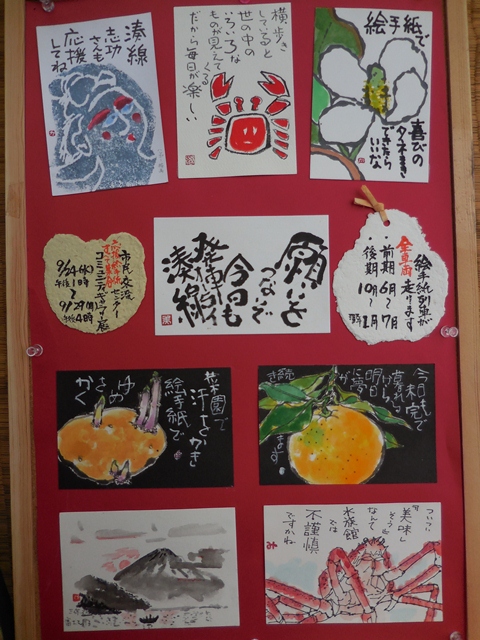 湊線
志功
さんも
応援
してね
横歩き
していると
世の中の
いろいろな
ものが見えて
くる
だから毎日が楽しい
絵手紙で
喜びの
タネまき
できたら
いいな
市民交流
センター
コミュニティギャラリー広
9/24(水)
午後1時
〜
9/29(月)
午後4時
願いを
つないで
今日も
発車オーライ
湊線
絵手紙列車が
走ります
全車両
・前期 6月〜7月
・後期 10月〜1月
菜園で
汗をかき
絵手紙で
ゆめ
さき
かく
今日も
未完で
暮れて
けら
明日
に夢
が
続き
ます
ついつい
「美味し
そう」
なんて
水族館
では
不謹慎
ですかね